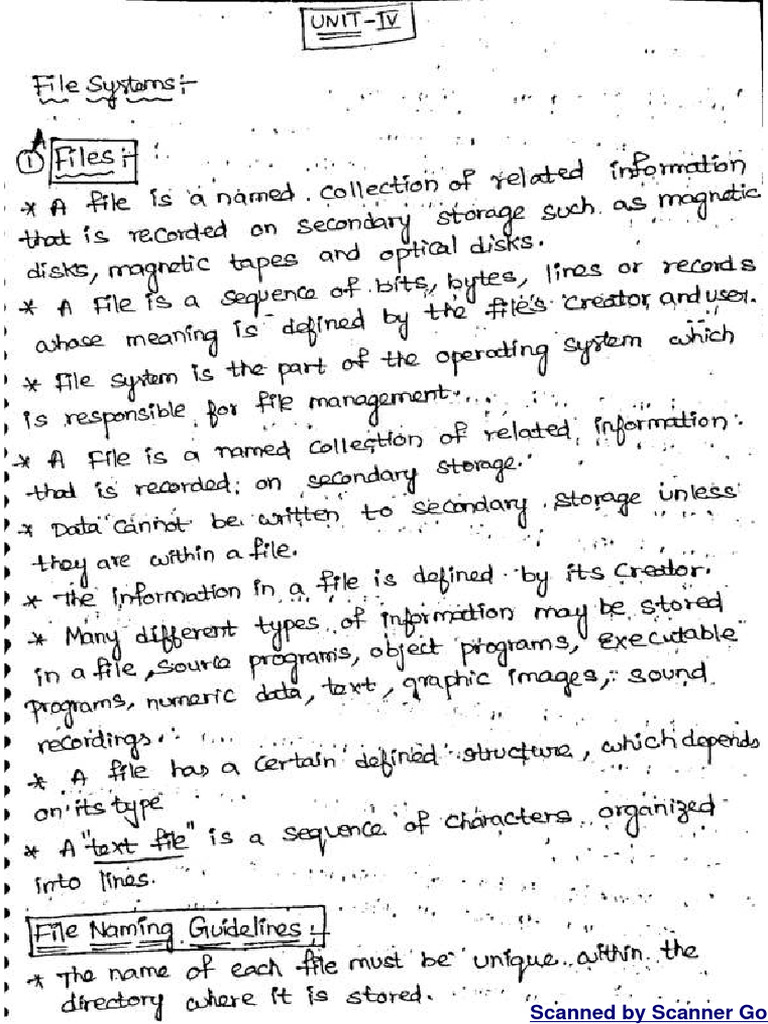 UNIT-IV
File Systems:-
① Files:-
* A file is a named collection of related information
that is recorded on secondary storage such as magnetic
disks, magnetic tapes and optical disks.
* A File is a sequence of bits, bytes, lines or records
whose meaning is defined by the file's creator and user.
* File system is the part of the operating system which
is responsible for file management.
* A File is a named collection of related information
that is recorded on secondary storage.
* Data cannot be written to secondary storage unless
they are within a file.
* The information in a file is defined by its creator.
* Many different types of information may be stored
in a file, source programs, object programs, executable
programs, numeric data, text, graphic images, sound
recordings.
* A file has a certain defined structure, which depends
on its type
* A "text file" is a sequence of characters organized
into lines.
File Naming Guidelines:-
* The name of each file must be unique within the
directory where it is stored.
Scanned by Scanner Go